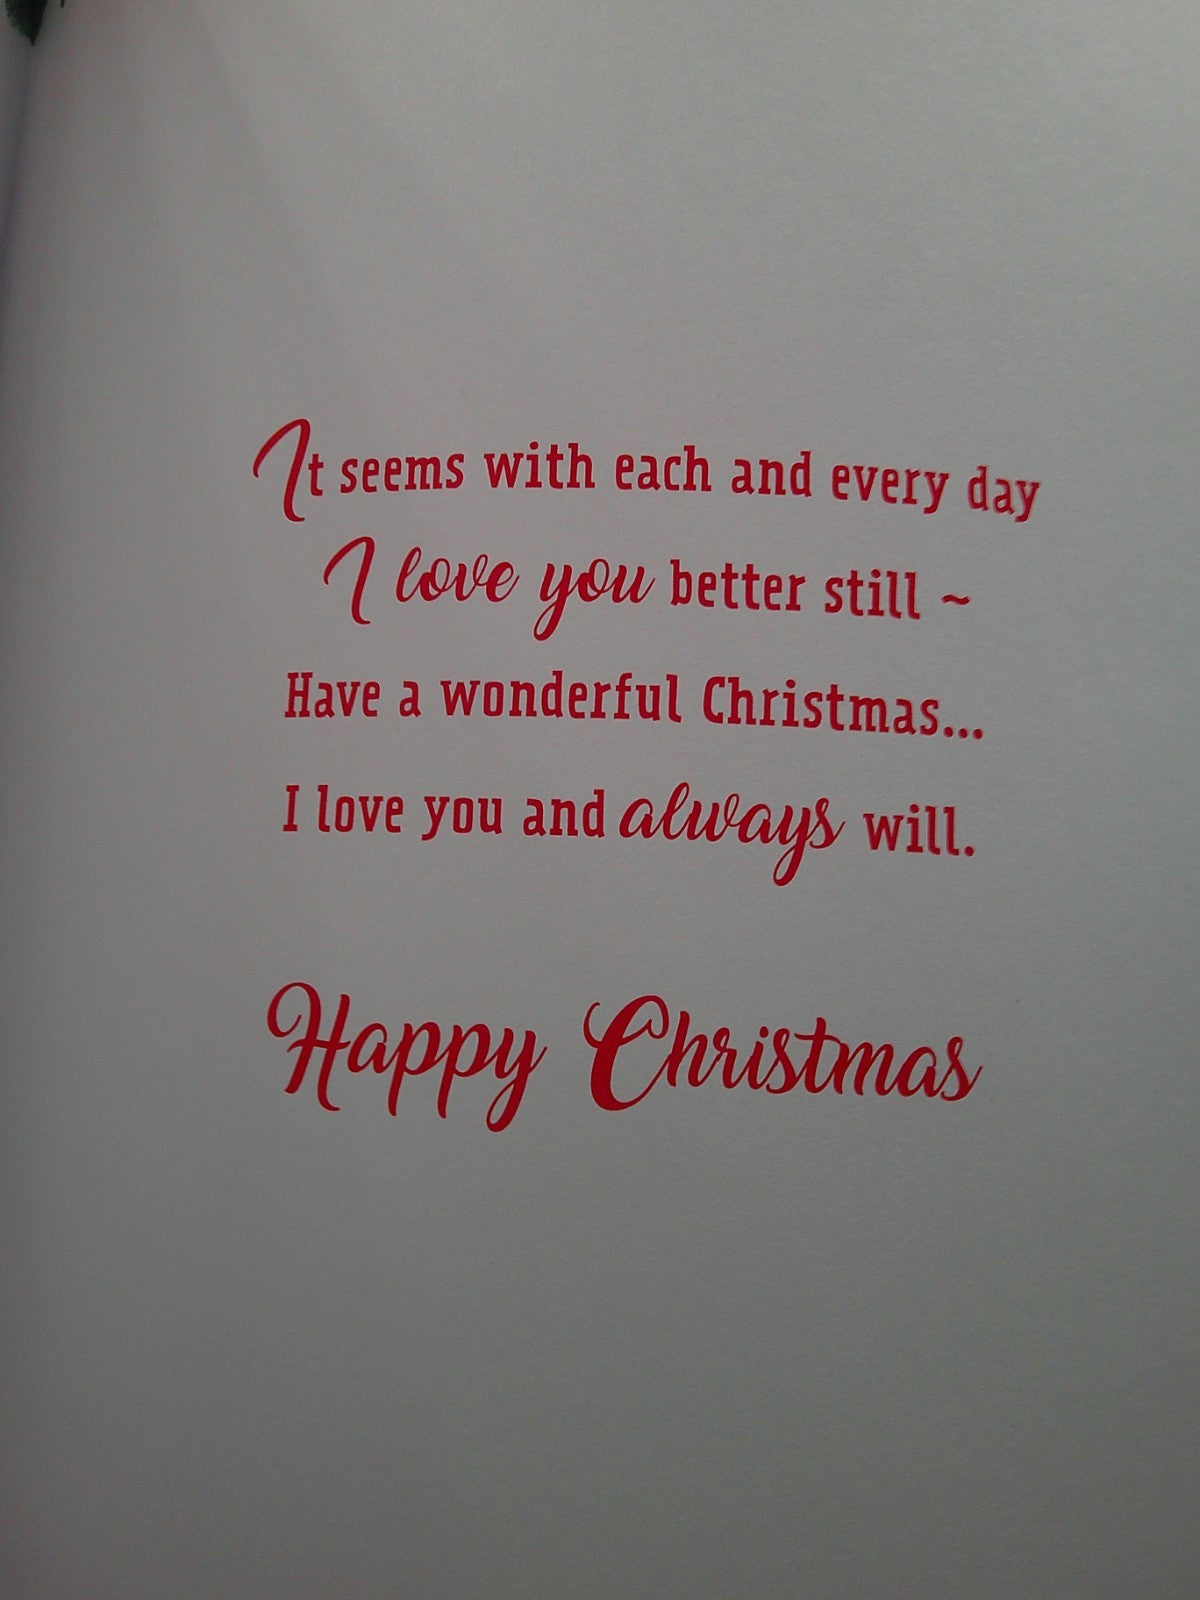 It seems with each and every day
I love you better still ~
Have a wonderful Christmas...
I love you and always will.
Happy Christmas